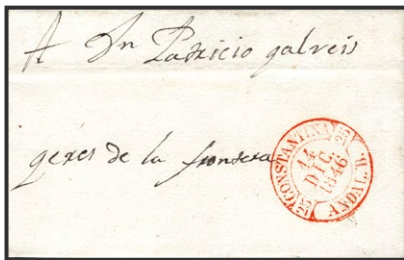 A Dn Patricio galveis
gerer de la frontera
CONSTANTINA
14
DIC.
1846
ANDAL. B.